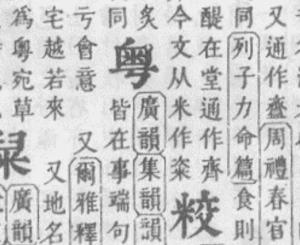 又通作齍周禮春官
同列子力命篇食則
醍在堂通作齊
今文从米作粢
炙
同
粤
廣韻集韻韻
皆在事端句
亏會意 又爾雅釋
宅越若來 又地名
爲粵宛草
廣韻